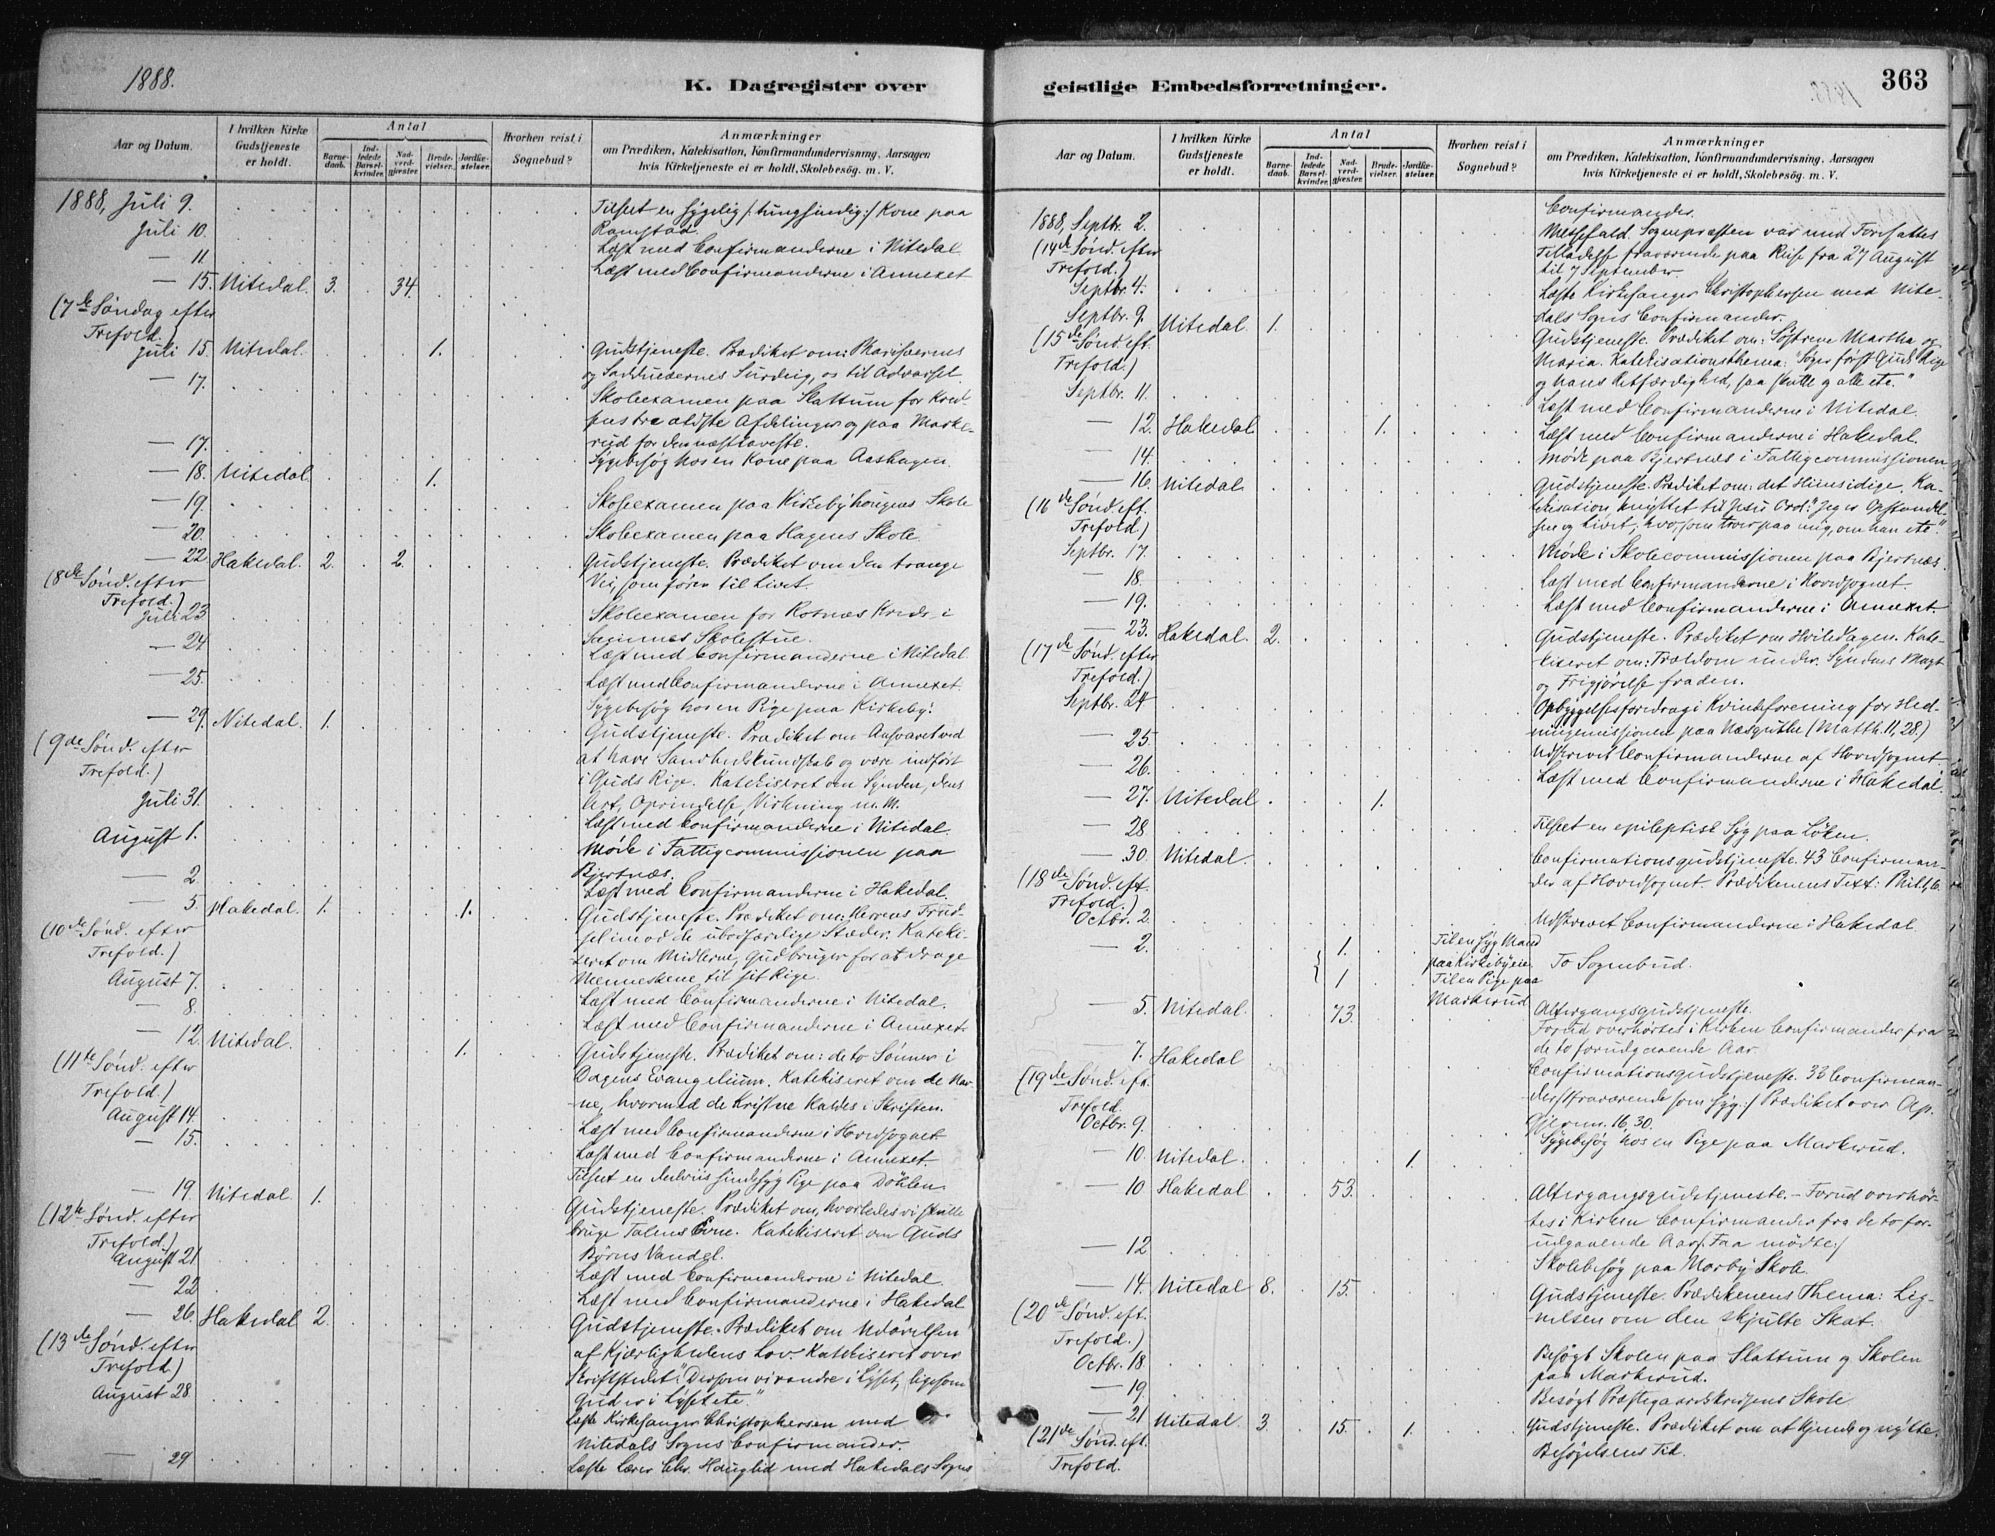 1888.
K. Dagregister over
Aar og Datum.
I hvilken Kirke Gudstjeneste er holdt.
Antal
Barnedaab.
Indledede Barselkvinder.
Nadverdgjæster.
Brudevielser.
Jordfæstelser.
Hvorhen reist i Sognebud?
Anmærkninger
om Prædiken, Katekisation, Konfirmandundervisning, Aarsagen
hvis Kirketjeneste ei er holdt, Skolebesøg. m. V.
1888, Juli 9. Tilseet en sygelig /:tungsindig:/ Kone paa
Ramstad.
Juli 10. Læst med Confirmanderne i Nitedal
— 11. Læst med Confirmanderne i Annexet
— 15. Nitedal. 3. 34.
(7de Søndag efter
Trefold.)
Juli 15. Nitedal. 1. Gudstjeneste. Prædiket om: Pharisæernes
og Sadducæernes Surdeig, os til Advarsel.
— 17. Skoleexamen paa Slattum for Kredsens
ældste Afdelinger og paa Markerud
for den næstlaveste.
— 17. Sygebesøg hos en Kone paa Aashagen.
— 18. Nitedal. 1.
— 19. Skoleexamen paa Kirkebyhougens Skole
— 20. Skoleexamen paa Hagens Skole.
— 22. Hakedal. 2. 2. Gudstjeneste. Prædiket om den trange
Vei, som fører til Livet.
(8de Sønd. efter
Trefold.)
Juli 23 Skoleexamen for Rotnæs Kreds i
Skolestue.
— 24. Læst med Confirmanderne i Nitedal.
— 25. Læst med Confirmanderne i Annexet.
Sygebesøg hos en Pige paa Kirkeby.
— 29. Nitedal. 1. Gudstjeneste. Prædiket om Ansvaret ved
at have Sandhedskundskab og være indført
i Guds Rige. Katekiseret om Synden, dens
Art, Oprindelse, Virkning m. M.
(9de Sønd. efter
Trefold.)
Juli 31. Læst med Confirmanderne i Nitedal.
August 1. Møde i Fattigcommissionen paa
Bjertnæs.
— 2. Læst med Confirmanderne i Hakedal.
— 5. Hakedal. 1. 1. Gudstjeneste. Prædiket om: Herrens Trudsel
imod de ubodfærdige Stæder. Katekiseret
om Midlerne, Gud bruger for at drage
Menneskene til sit Rige.
(10de Sønd. efter
Trefold.)
August 7. Læst med Confirmanderne i Nitedal.
— 8. Læst med Confirmanderne i Annexet.
— 12. Nitedal. 1. Gudstjeneste. Prædiket om: de to Sønner i
Dagens Evangelium. Katekiseret om de Navne,
hvormed de Kristne kaldes i Skriften.
(11te Sønd. efter
Trefold.)
August 14. Læst med Confirmanderne i Hovedsognet.
— 15. Læst med Confirmanderne i Annexet.
Tilseet en sindssyg Pige paa Døhlen.
— 19. Nitedal. 1. Gudstjeneste. Prædiket om, hvorledes vi skulle
bruge Talens Evne. Katekiseret om Guds
Børns Vandel.
(12te Sønd. efter
Trefold.)
August 21. Læst med Confirmanderne i Nitedal.
— 22 Læst med Confirmanderne i Hakedal
— 26. Hakedal 2. Gudstjeneste. Prædiket om Udøvelsen
af Kjærlighedens Lov. Katekiseret over
Skriftstedet: "Dersom vi vandre i Lyset, ligesom
Gud er i Lyset etc."
(13de Sønd. efter
Trefold.)
August 28 Læste Kirkesanger Christophersen med
Nitedals Sogns Confirmander.
— 29 Læste Lærer Chr. Hauglid med Hakedals Sogns
geistlige Embedsforretninger.
363
Aar og Datum.
I hvilken Kirke Gudstjeneste er holdt.
Antal
Barnedaab.
Indledede Barselkvinder.
Nadverdgjæster.
Brudevielser.
Jordfæstelser.
Hvorhen reist i Sognebud?
Anmærkninger
om Prædiken, Katekisation, Konfirmandundervisning, Aarsagen
hvis Kirketjeneste ei er holdt, Skolebesøg. m. V.
Confirmander.
1888, Septbr. 2. Messfald. Sognepræsten var med Foresattes
Tilladelse fraværende paa Reise fra 27 August
til 7 September.
(14de Sønd. efter
Trefold.)
Septbr. 4. Læste Kirkesanger Christophersen med Nitedals
Sogns Confirmander.
Septbr. 9. Nitedal. 1. Gudstjeneste. Prædiket om: Søstrene Martha og
Maria. Katekisationsthema: "Søger først Guds Rige
og hans Retfærdighed, saa skulle og alle etc."
(15de Sønd. eft.
Trefold.)
Septbr. 11. Læst med Confirmanderne i Nitedal.
— 12. Hakedal. 1. Læst med Confirmanderne i Hakedal.
— 14. Møde paa Bjertnæs i Fattigcommissionen
— 16. Nitedal. Gudstjeneste. Prædiket om: det Hinsidige. Katekisation,
knyttet til Jesu Ord: "Jeg er Opstandelsen
og Livet, hvo, som troer paa mig, om han etc."
(16de Sønd. eft.
Trefold.)
Septbr. 17. Møde i Skolecommissionen paa Bjertnæs.
— 18. Læst med Confirmanderne i Hovedsognet.
— 19. Læst med Confirmanderne i Annexet.
— 23. Hakedal. 2. Gudstjeneste. Prædiket om Hviledagen. Katekiseret
om: Trældom under Syndens Magt
og Frigjørelse fra den.
(17de Sønd. efter
Trefold.)
Septbr. 24 Opbyggelsesforedrag i Kvindeforening for Hedningemissionen
paa Næsgutha (Matth. 11, 28.)
— 25. Udskrevet Confirmanderne af Hovedsognet
— 26. Læst med Confirmanderne i Hakedal.
— 27. Nitedal. 1.
— 28. Tilseet en epileptisk Syg paa Løken.
— 30. Nitedal. Confirmationsgudstjeneste. 43 Confirmander
af Hovedsognet. Prædikenens Text: Phil. 1, 6.
(18de Sønd. eft.
Trefold.)
Octbr. 2. Udskrevet Confirmanderne i Hakedal.
— 2. 1. Til en syg Mand
paa Kirkebyeie.
1 Til en Pige paa
Markerud
To Sognebud.
— 5. Nitedal. 73. Altergangsgudstjeneste.
Forud overhørtes i Kirken Confirmander fra
de to forudgaaende Aar.
— 7. Hakedal Confirmationsgudstjeneste. 33 Confirmander
fraværende som syg:/ Prædiket over Ap.
Gjern. 16, 30.
(19de Sønd. eft.
Trefold.
Octbr. 9. Sygebesøg hos en Pige paa Markerud.
— 10. Nitedal. 1.
— 10 Hakedal. 53. Altergangsgudstjeneste. — Forud overhørtes
i Kirken Confirmander fra de to forudgaaende
Aar /: Faa mødte:/
— 12 Skolebesøg paa Marby Skole.
— 14. Nitedal 8. 15. Gudstjeneste. Prædikenens Thema: Lignelsen
om den skjulte Skat.
(20de Sønd. eft.
Trefold.)
Octbr. 18. Besøgt Skolen paa Slattum og Skolen
paa Markerud.
— 19. Besøgt Præstegaardskredsens Skole
— 21 Nitedal 3. 15. 1. Gudstjeneste. Prædiket om at kjende og nytte
Besøgelsens Tid.
(21de Sønd. eft.
Trefold.